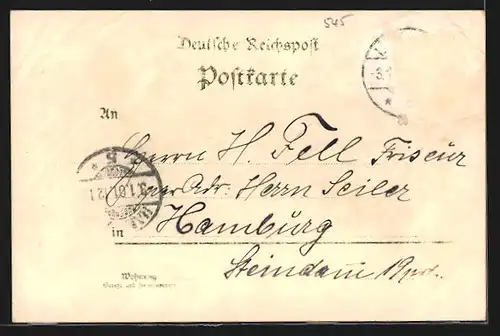 545
Deutsche Reichspost
Postkarte
An
Herrn H. Fell Friseur
Adr. Herrn Seiler
in Hamburg
Steindamm
Wohnung